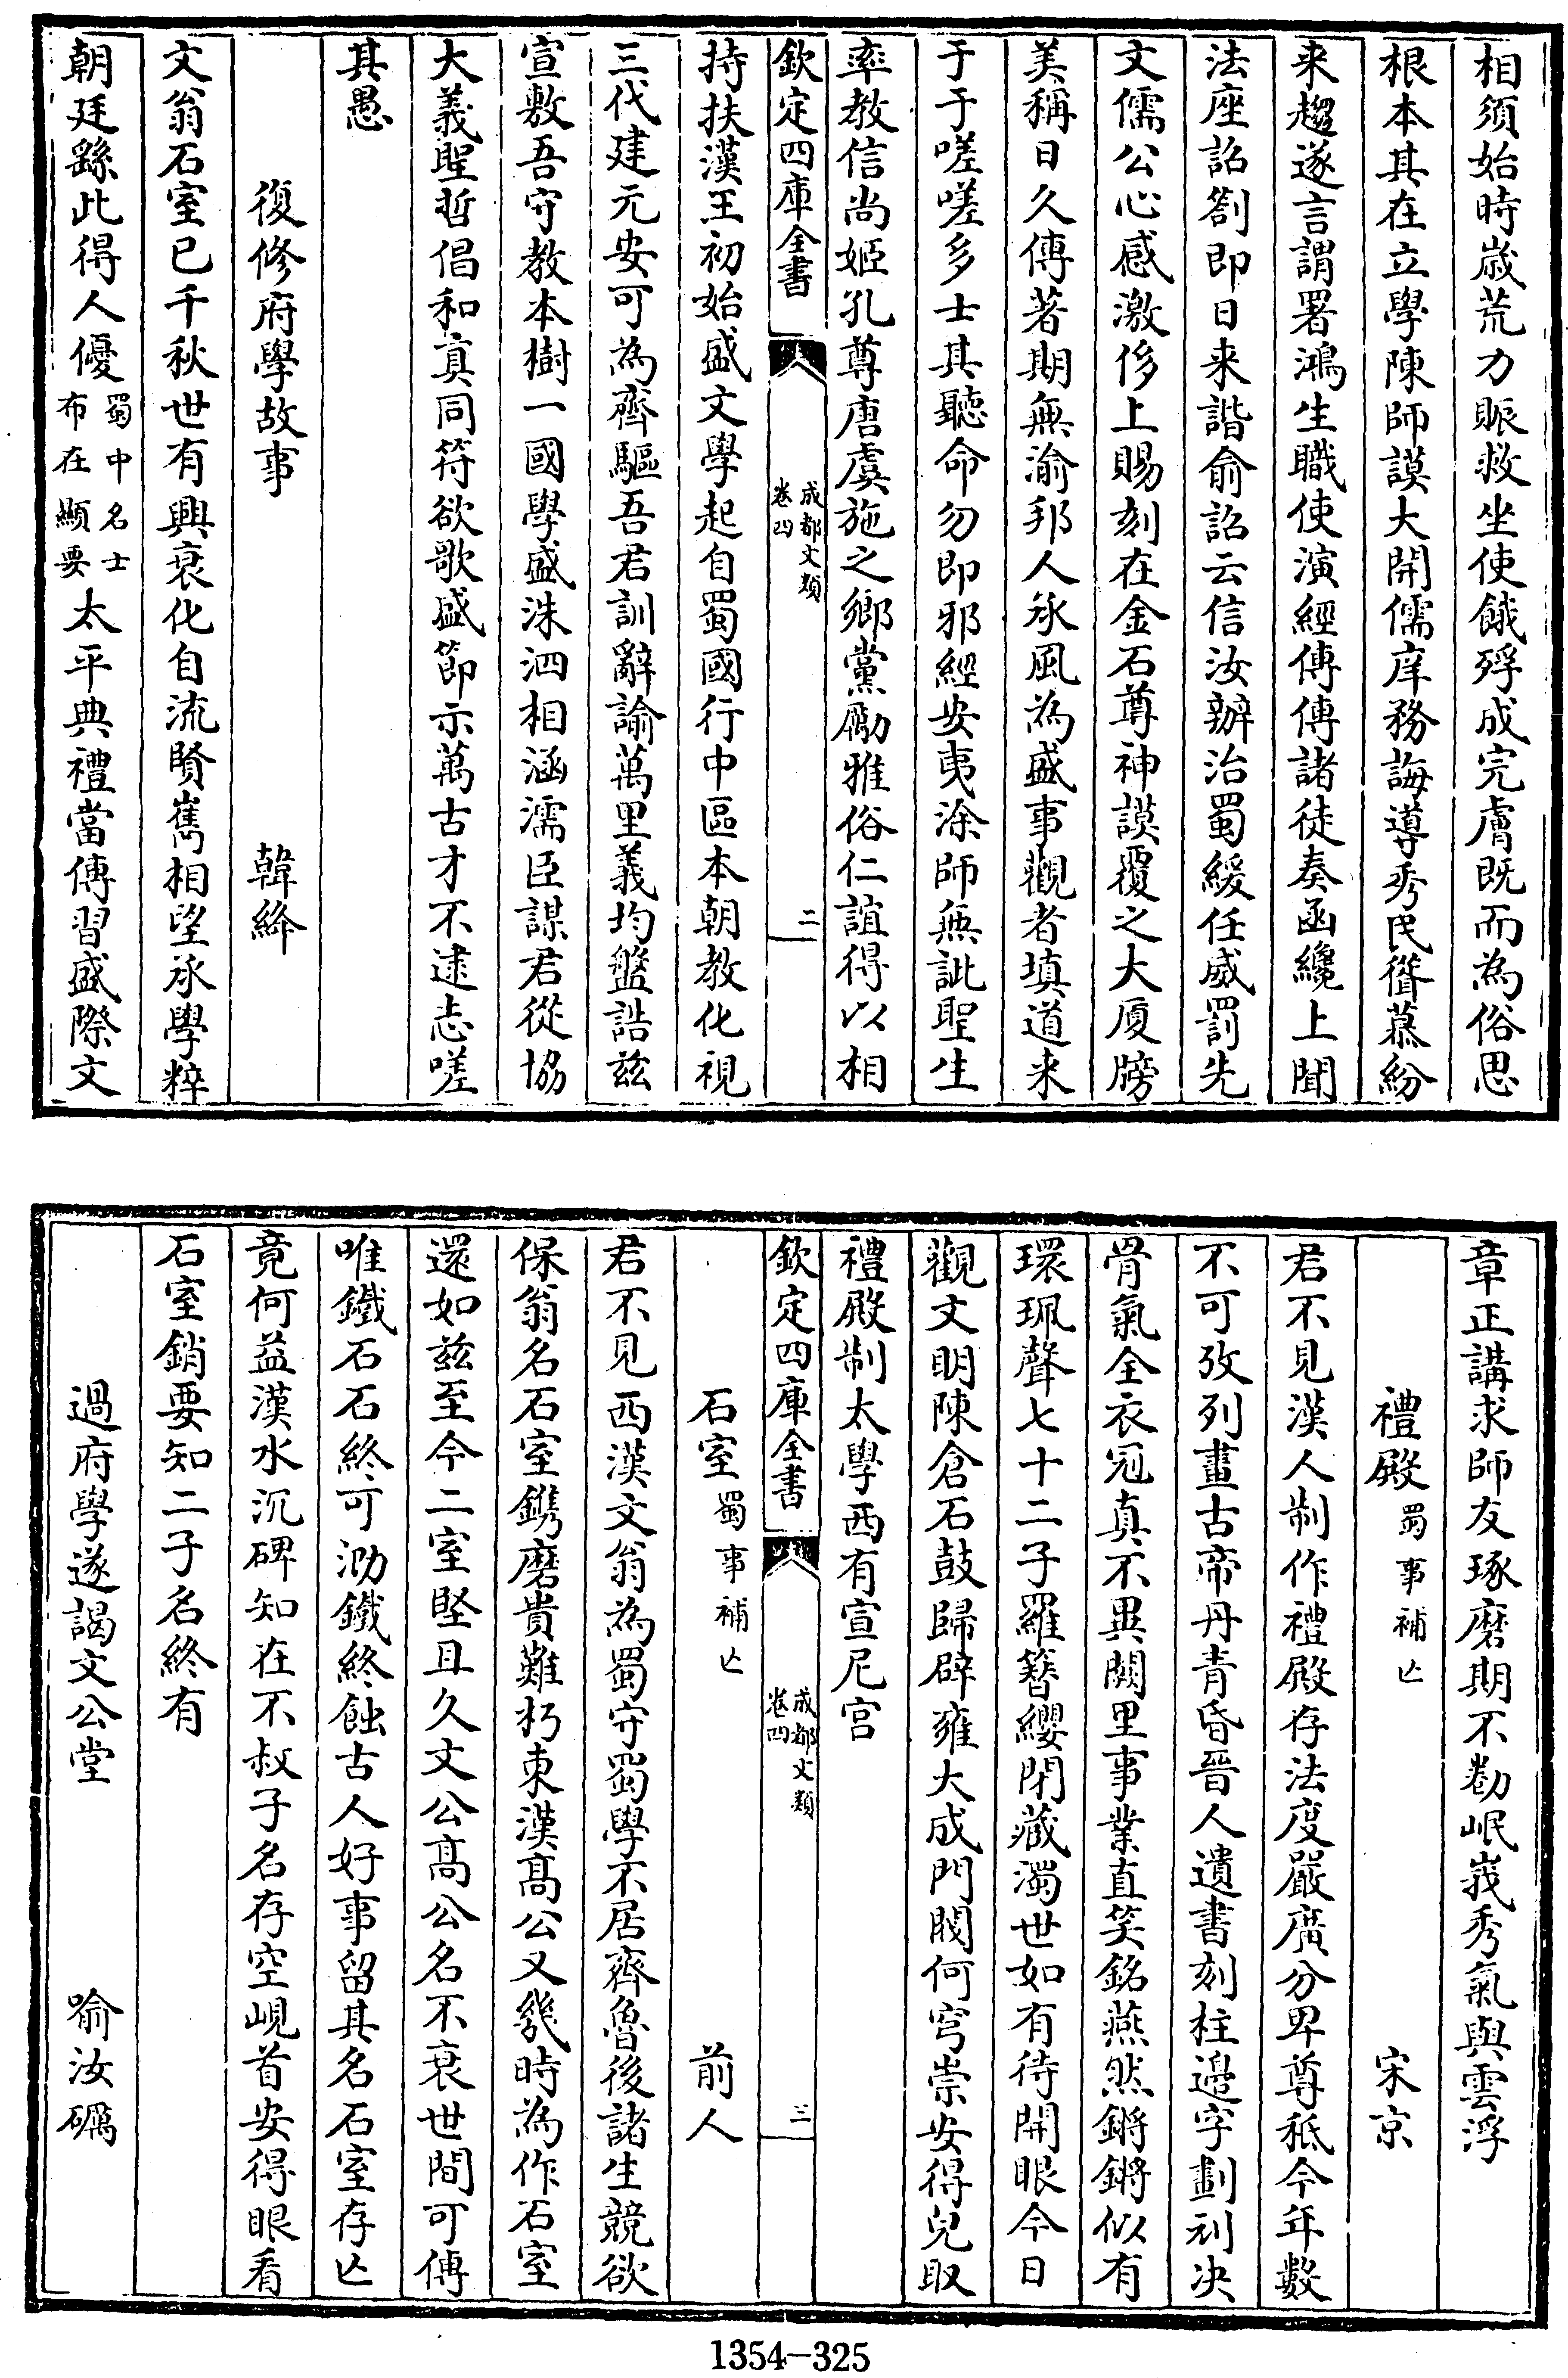 相須始時歲荒力賑救坐使餓殍成完膚既而為俗思
根本其在立學陳師謨大開儒庠務誨導秀民聳慕紛
来趨遂言謂署鴻生職使演經傳傳諸徒奏函纔上聞
法座詔劄即日来諧俞詔云信汝辦治蜀緩任威罰先
文儒公心感激侈上賜刻在金石尊神謨覆之大厦牓
美稱日久傳著期無渝邦人承風為盛事觀者填道来
于于嗟嗟多士其聽命勿即邪經安夷涂師無訿聖生
率教信尚姬孔尊唐虞施之鄉黨勵雅俗仁誼得以相
欽定四庫全書
成都文類
卷四
二
持扶漢王初始盛文學起自蜀國行中區本朝教化視
三代建元安可為齊驅吾君訓辭諭萬里義均盤誥兹
宣敷吾守教本樹一國學盛洙泗相涵濡臣謀君從協
大義聖哲倡和真同符欲歌盛節示萬古才不逮志嗟
其愚
復修府學故事 韓絳
文翁石室已千秋世有興衰化自流賢雋相望承學粹
朝廷繇此得人優蜀中名士布在顯要太平典禮當傳習盛際文
章正講求師友琢磨期不勌岷峩秀氣與雲浮
禮殿蜀事補亾 宋京
君不見漢人制作禮殿存法度嚴廣分卑尊秪今年數
不可攷列畫古帝丹青昏晉人遺書刻柱邉字劃刓决
骨氣全衣冠真不異闕里事業直笑銘燕然鏘鏘似有
環珮聲七十二子羅簪纓閉藏濁世如有待開眼今日
觀文明陳倉石鼓歸辟雍大成門閥何穹崇安得兒取
禮殿制太學西有宣尼宫
欽定四庫全書
成都文類
卷四
三
石室蜀事補亾 前人
君不見西漢文翁為蜀守蜀學不居齊魯後諸生競欲
保翁名石室鐫磨貴難朽東漢高公又幾時為作石室
還如兹至今二室堅且久文公高公名不衰世間可傳
唯鐵石石終可泐鐵終蝕古人好事留其名石室存亾
竟何益漢水沉碑知在不叔子名存空峴首安得眼看
石室銷要知二子名終有
過府學遂謁文公堂 喻汝礪
1354-325